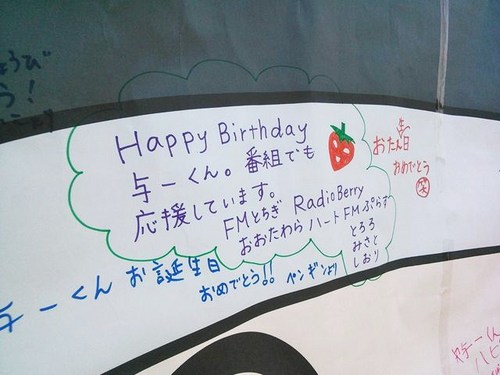 Happy Birthday
与一くん。番組でも
応援しています。
FMとちぎ RadioBerry
おおたわらハートFMぷらす
とろろ
みさと
しおり
おたん生日
おめでとう
笑
与一くん お誕生日
おめでとう!! ペンギンより